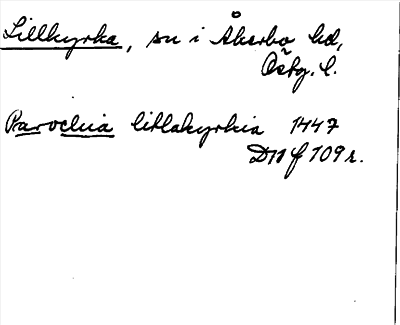 Lillkyrka, sn i Åkerbo hd,
Östg. l.
Parochia litlakyrkia 1447
D11 f 109 r.